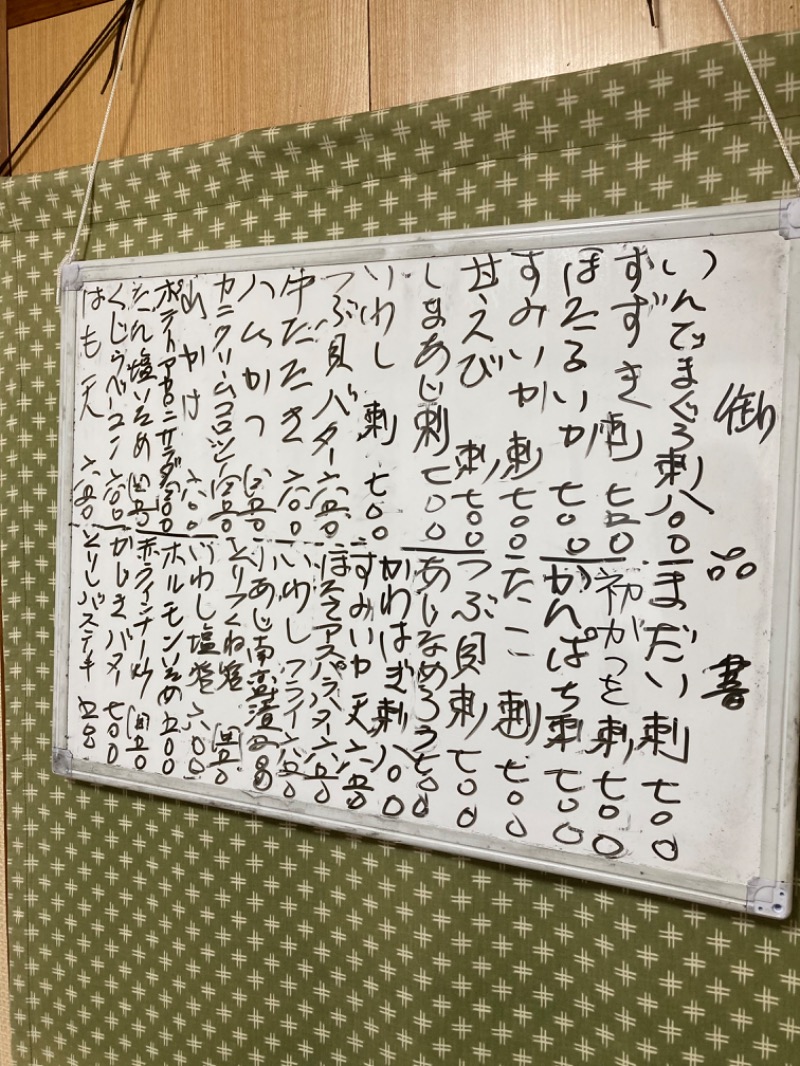 御品書
いんどまぐろ刺 八〇〇
すずき刺 七五〇
ほたるいか 七〇〇
すみいか刺 七〇〇
甘えび刺 七〇〇
しまあじ刺 七〇〇
いわし刺 七〇〇
つぶ貝バター 六五〇
牛たたき 六〇〇
ハムかつ 四五〇
カニクリームコロッケ 四五〇
山かけ 六〇〇
ポテトマカロニサラダ
たん塩いため 四五〇
くじらベーコン 六〇〇
はも天 六五〇
まだい刺 七〇〇
初がつを刺 七〇〇
かんぱち刺 七〇〇
たこ刺 七〇〇
つぶ貝刺 七〇〇
あじなめろう 七〇〇
かわはぎ刺 八〇〇
すみいか天 六五〇
ほたてアスパラバター 六五〇
いわしフライ 六五〇
小あじ南蛮漬
とりつくね 四五〇
いわし塩 六〇〇
ホルモンいため 五〇〇
赤ウインナー炒 四五〇
かじきバター 七〇〇
とりしバステキ 五五〇